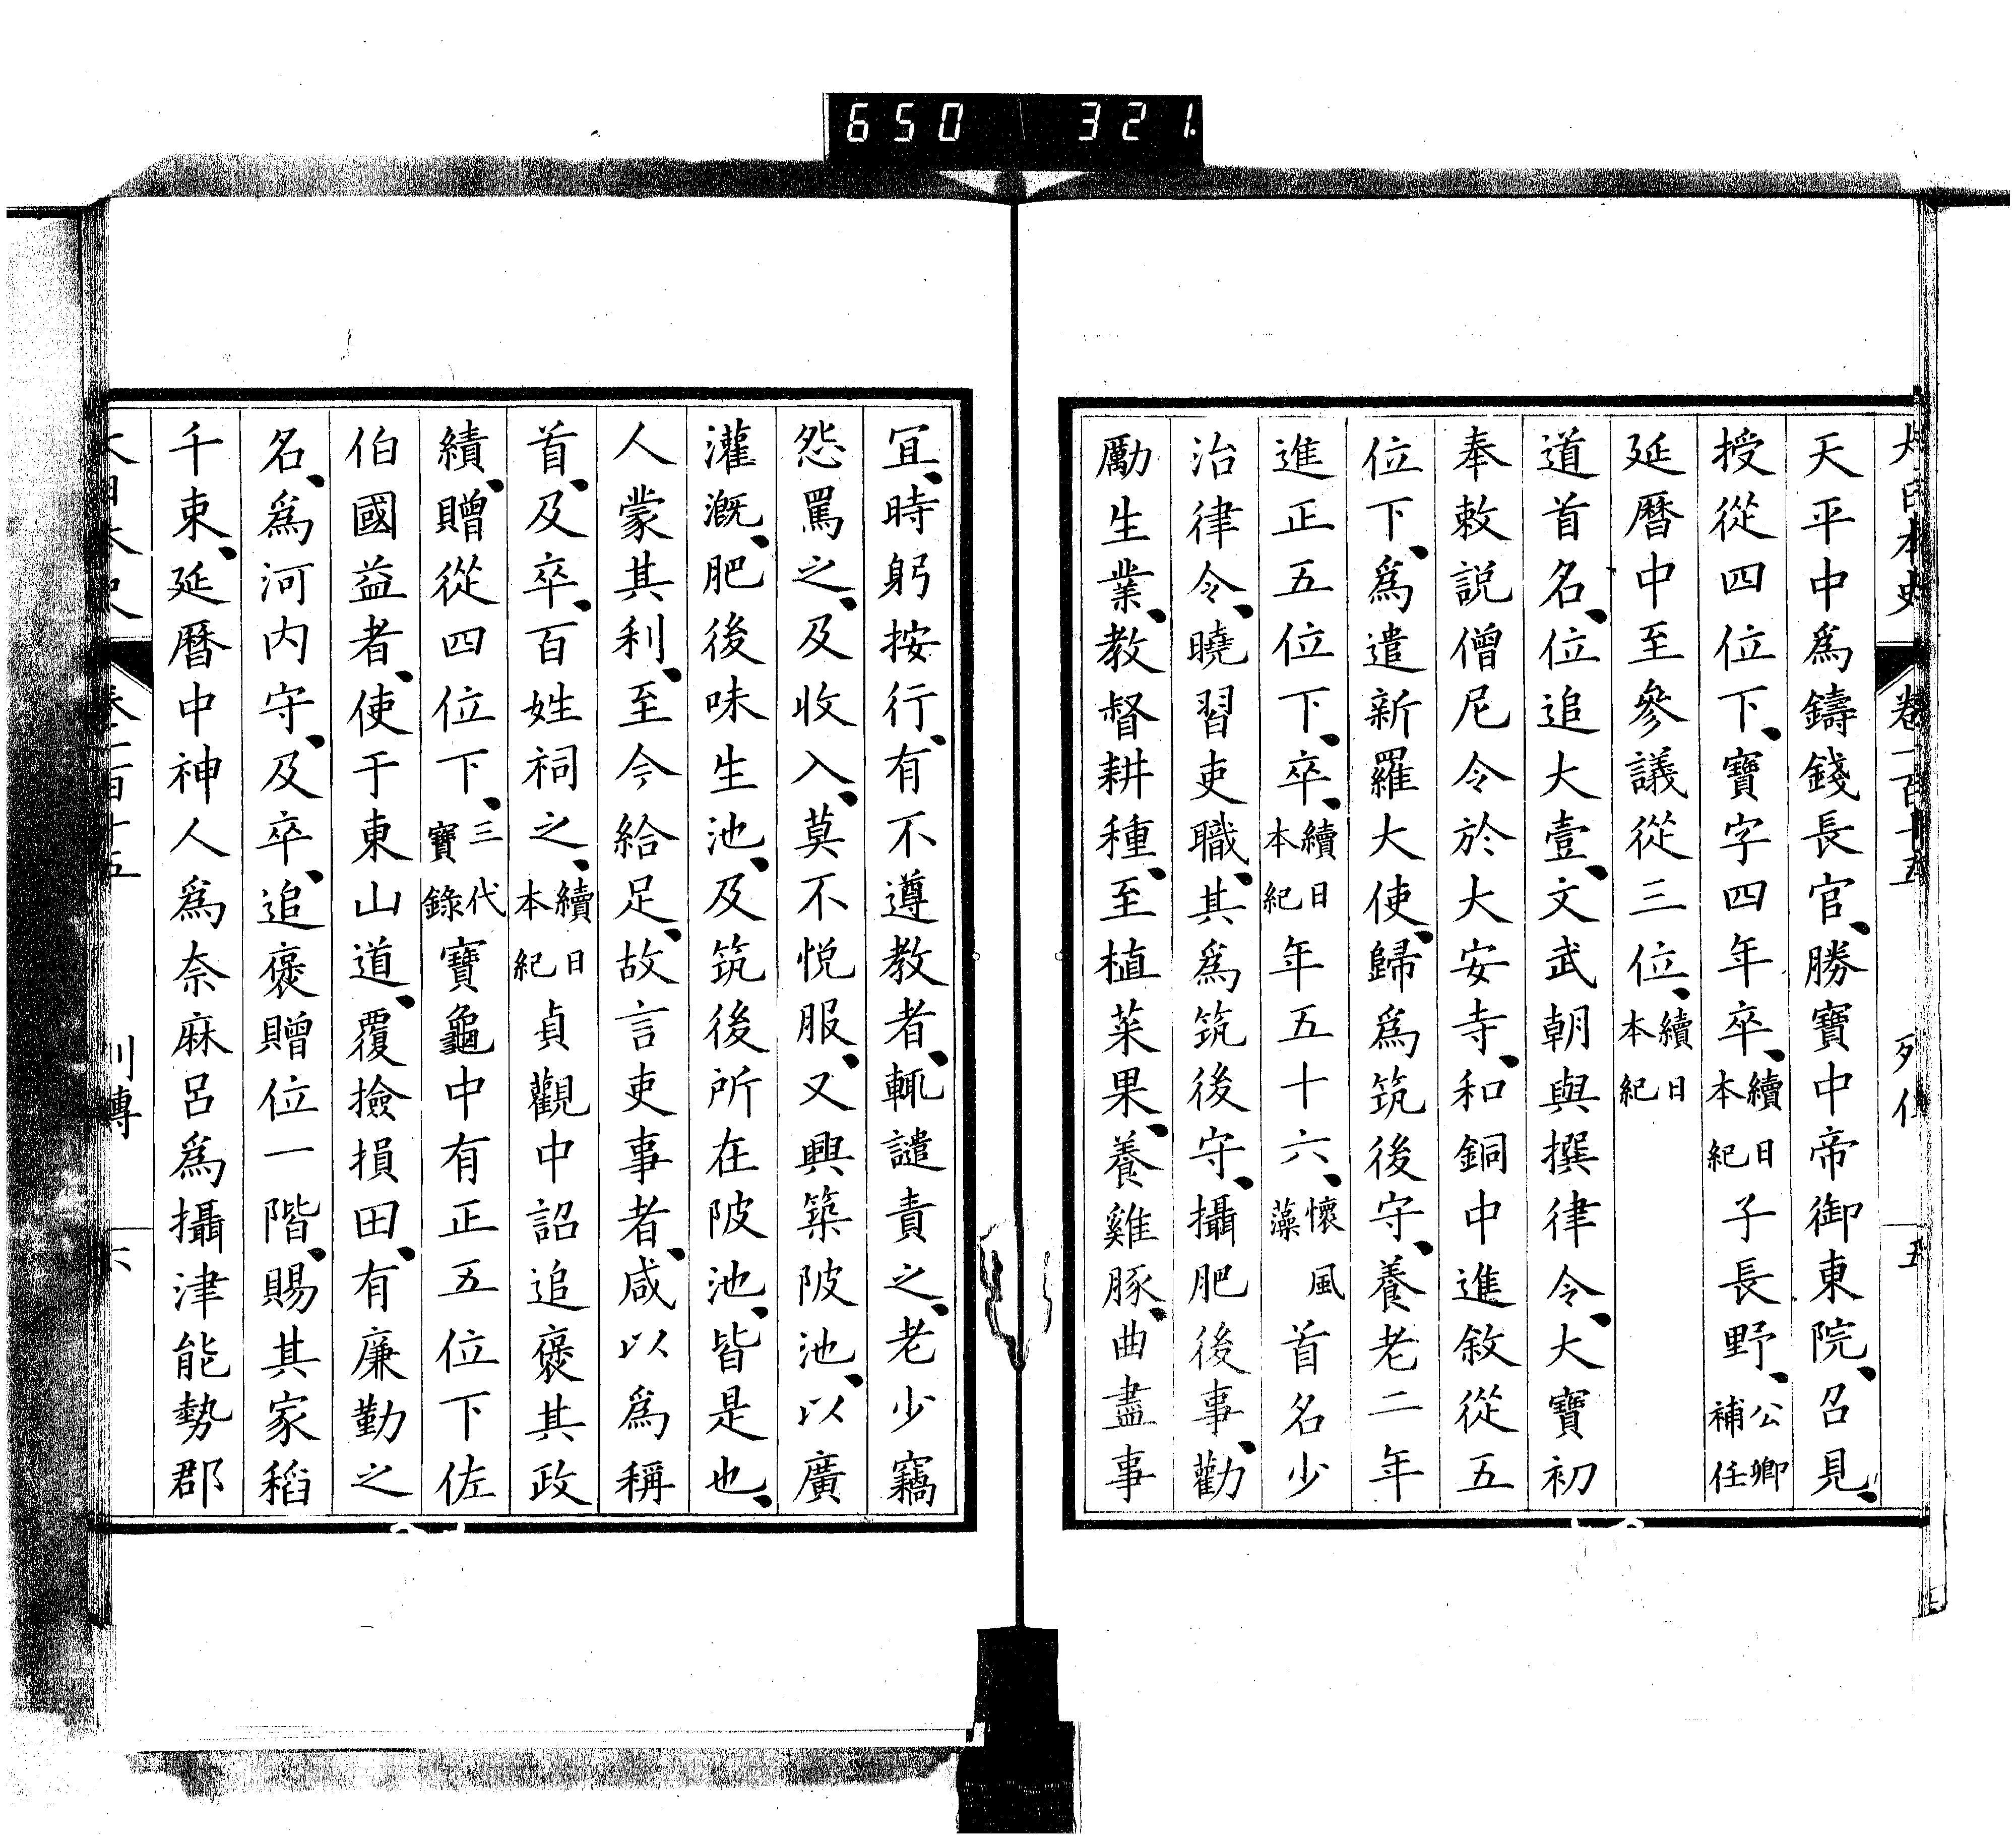 650 321
天平中爲鑄錢長官、勝寶中帝御東院、召見、
授從四位下、寶字四年卒、續日本紀子長野、公卿補任
延曆中至參議從三位、續日本紀
道首名、位追大壹、文武朝與撰律令、大寶初
奉敕説僧尼令於大安寺、和銅中進敘從五
位下、爲遣新羅大使、歸爲筑後守、養老二年
進正五位下、卒、續日本紀年五十六、懷風藻首名少
治律令、曉習吏職、其爲筑後守、攝肥後事、勸
勵生業、教督耕種、至植菜果、養雞豚、曲盡事
宜、時躬按行、有不遵教者、輒譴責之、老少竊
怨罵之、及收入、莫不悅服、又興築陂池、以廣
灌漑、肥後味生池、及筑後所在陂池、皆是也、
人蒙其利、至今給足、故言吏事者、咸以爲稱
首、及卒、百姓祠之、續日本紀貞觀中詔追褒其政
績、贈從四位下、三代寶錄寶龜中有正五位下佐
伯國益者、使于東山道、覆撿損田、有廉勤之
名、爲河内守、及卒、追褒贈位一階、賜其家稻
千束、延曆中神人爲奈麻呂爲攝津能勢郡